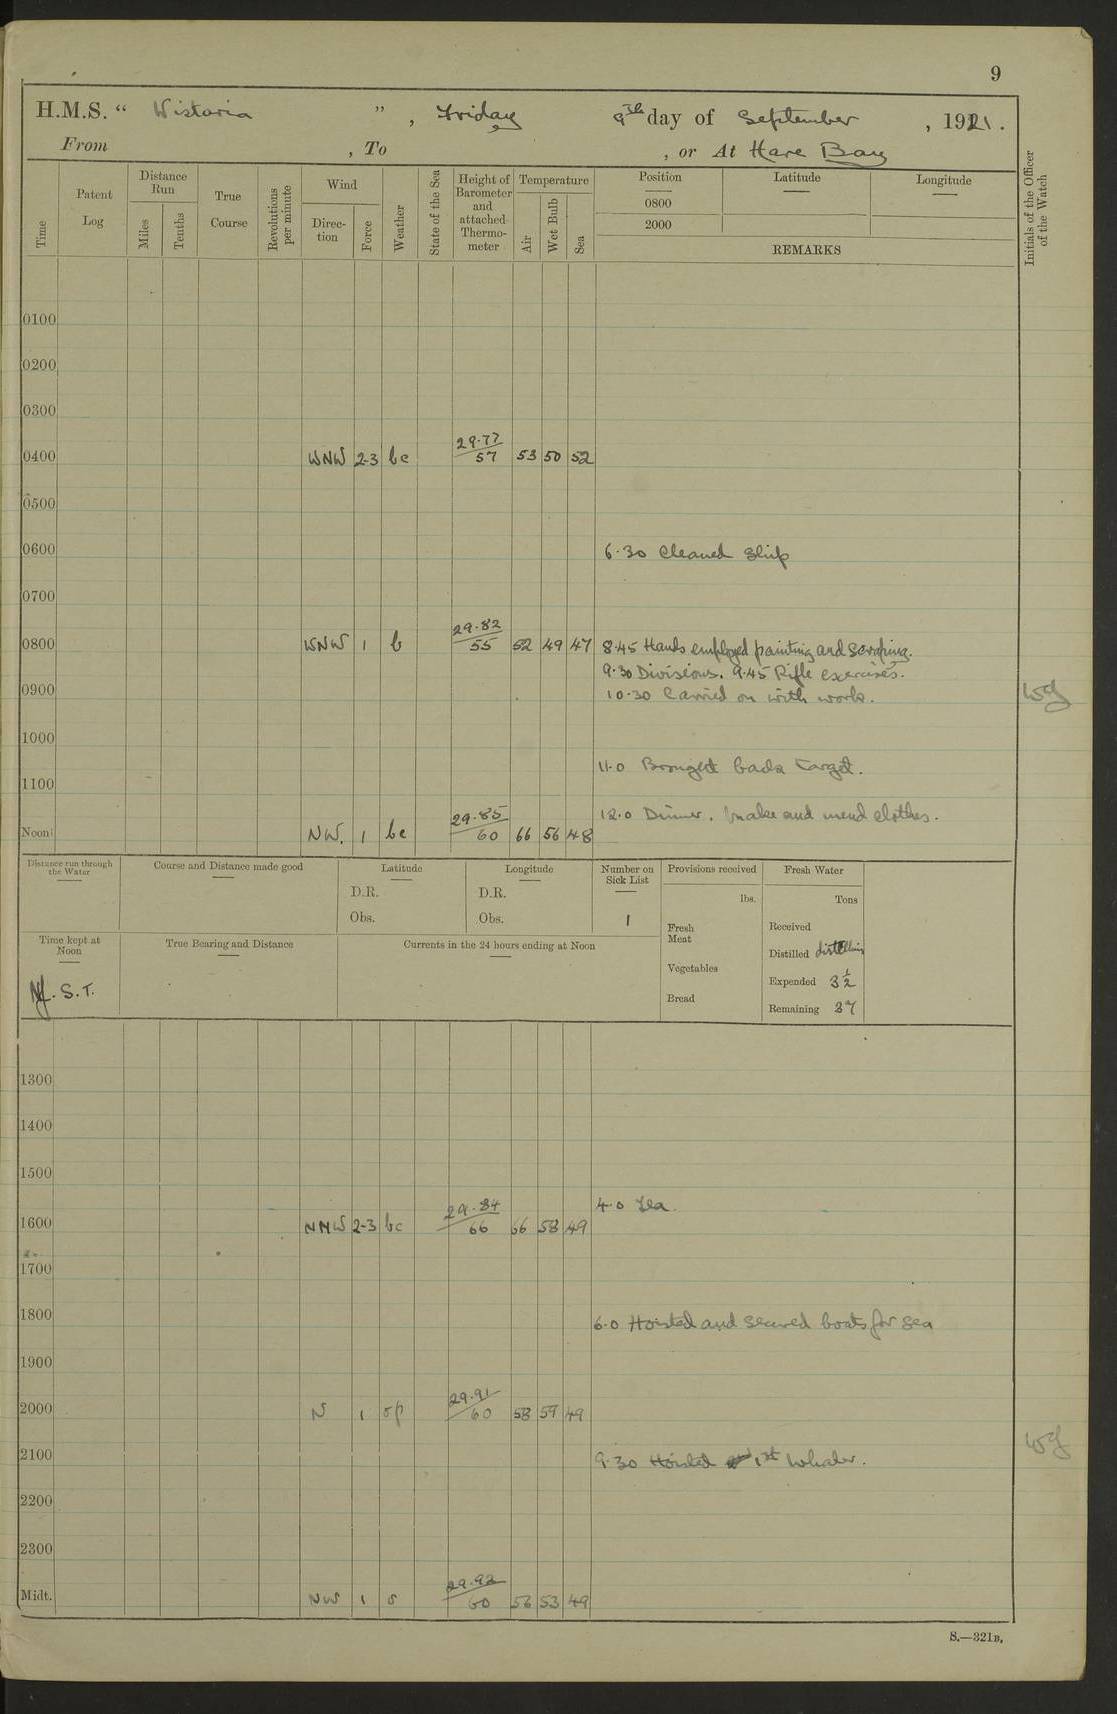 9
H.M.S. “ Wistaria ” , Friday 9th day of September , 1921.
From , To , or At Hare Bay
Time
Patent Log
Distance Run
Miles
Tenths
True Course
Revolutions per minute
Wind
Direc-tion
Force
Weather
State of the Sea
Height of Barometer and attached Thermo-meter
Temperature
Air
Wet Bulb
Sea
Position
0800
2000
Latitude
Longitude
REMARKS
Initials of the Officer of the Watch
0100
0200
0300
0400 WNW 2-3 bc 29.77/57 53 50 52
0500
0600 6.30 Cleaned ship
0700
0800 WNW 1 b 29.82/55 52 49 47 8.45 Hands employed painting and scraping.
9.30 Divisions. 9.45 Rifle exercises.
0900 10.30 Carried on with work. WG
1000
11.0 Brought back target.
1100
12.0 Dinner. Make and mend clothes.
Noon NW. 1 bc 29.85/60 66 56 48
Distance run through the Water
Course and Distance made good
Latitude
D.R.
Obs.
Longitude
D.R.
Obs.
Number on Sick List
1
Provisions received
lbs.
Fresh Meat
Vegetables
Bread
Fresh Water
Tons
Received
Distilled distilling
Expended 3½
Remaining 37
Time kept at Noon
Nf. S.T.
True Bearing and Distance
Currents in the 24 hours ending at Noon
1300
1400
1500
4.0 Tea.
1600 NNW 2-3 bc 29.84/66 66 58 49
1700
1800 6.0 Hoisted and secured boats for sea
1900
2000 N 1 op 29.91/60 58 59 49
2100 9.30 Hoisted 1st Whaler. WG
2200
2300
Midt. NW 1 o 29.92/60 56 53 49
S.—321B.